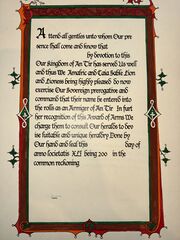 Attend all gentles unto whom Our pre
sence shall come and know that
by devotion to this
Our Kingdom of An Tir has served Us well
and thus We Amalric and Caia Stable Lion
and Lioness being highly pleased So now
exercise Our Sovereign prerogative and
command that their name be entered into
the rolls as an Armiger of An Tir In furt
her recognition of this Award of Arms We
charge them to consult Our heralds to devi
se suitable and unique heraldry Done by
Our hand and seal this day of
anno societatis XLI being 200 in the
common reckoning